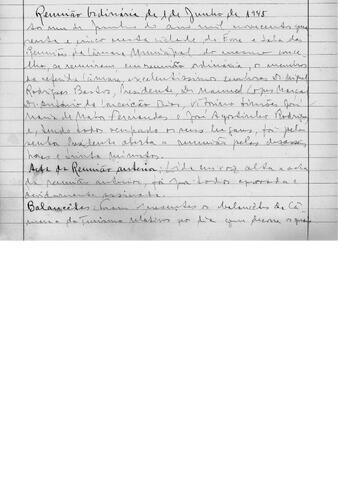 Reunião Ordinária de 1 de Junho de 1945
dia de Junho do ano mil novecentos qua-
renta e cinco nesta cidade de e Sala das
Reuniões da Câmara Municipal do mesmo conce-
lho, se reuniram, em reunião ordinária, os membros
da referida Câmara, excelentíssimos senhores Dr.
Rodrigues Bastos, Presidente, Dr. Manuel Lopes
Dr. António da Encarnação Dias, Vitorino Simões, José
Maria de Matos Fernandes e José Agostinho Rodrigues
e, tendo todos ocupado os seus lugares, foi pelo
senhor Presidente aberta a reunião pelas dezas-
horas e trinta minutos.
Acta da Reunião anterior: Lida em voz alta a acta
da reunião anterior, foi por todos aprovada e
devidamente assinada.
Balancetes: Foram presentes os balancetes da Câ-
mara e do Turismo relativos ao dia que decorre o qual